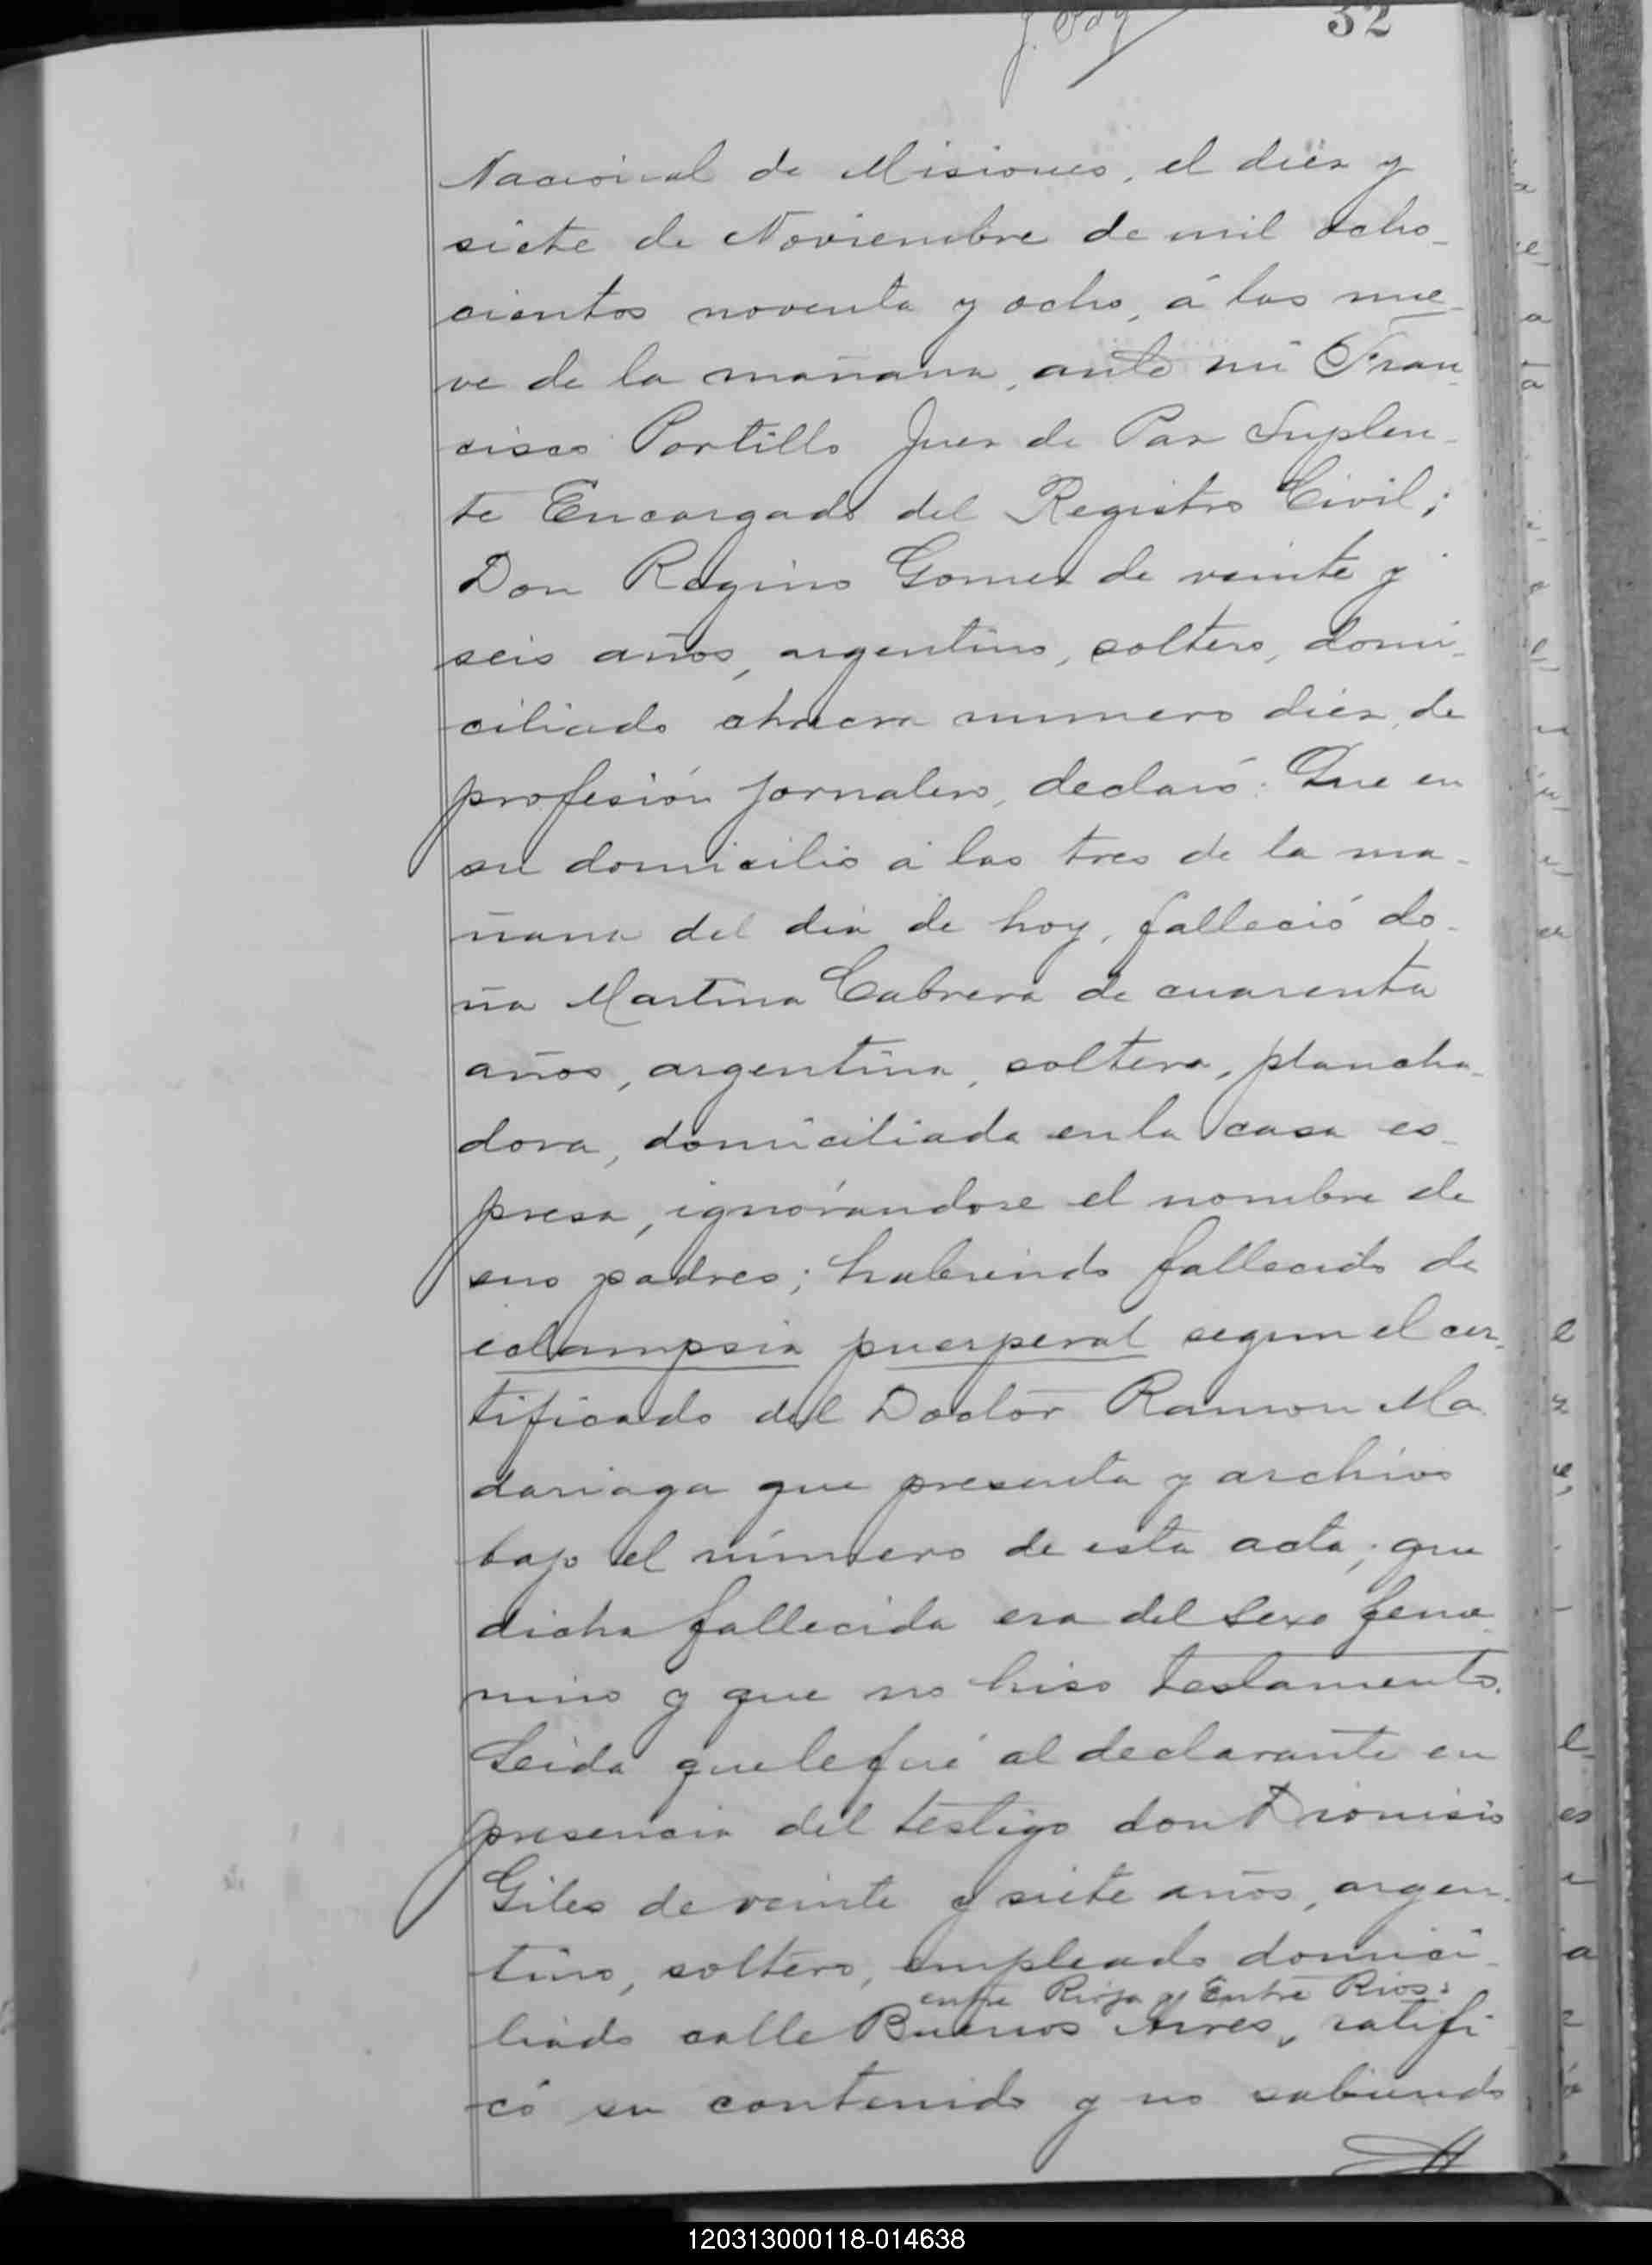 32
Nacional de Misiones, el diez y
siete de Noviembre de mil ocho-
cientos noventa y ocho, á las nue-
ve de la mañana, ante mi Fran
cisco Portillo Juez de Paz Suplen-
te Encargado del Registro Civil;
Don Regino Gomez de veinte y
seis años, argentino, soltero, domi-
ciliado chacra numero diez, de
profesión jornalero, declaró: Que en
su domicilio á las tres de la ma-
ñana del dia de hoy, falleció do-
ña Martina Cabrera de cuarenta
años, argentina, soltera, plancha-
dora, domiciliada en la casa es-
presa, ignorándose el nombre de
sus padres; habiendo fallecido de
eclampsia puerperal segun el cer-
tificado del Doctor Ramon Ma
dariaga que presenta y archivo
bajo el número de esta acta; que
dicha fallecida era del sexo feme-
nino y que no hiso testamento.
Leida que le fué al declarante en
presencia del testigo don Dionisio
Giles de veinte y siete años, argen-
tino, soltero, empleado domici-
entre Rioja y Entre Rios:
liado calle Buenos Aires, ratifi
có su contenido y no sabiendo
120313000118-014638